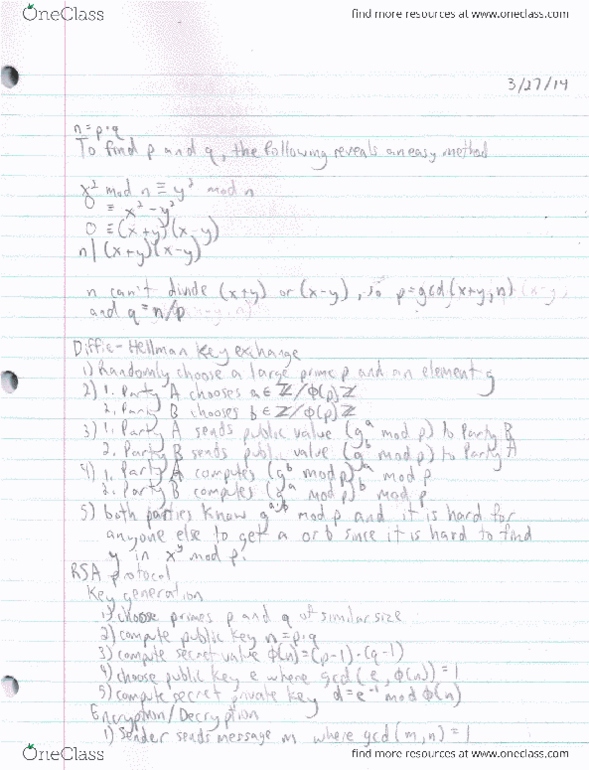 OneClass
find more resources at www.oneclass.com
3/27/14
n = p·q
To find p and q, the following reveals an easy method
x² mod n ≡ y² mod n
0 ≡ x² - y²
0 ≡ (x+y)(x-y)
n | (x+y)(x-y)
n can't divide (x+y) or (x-y), so p = gcd(x+y, n)
and q = n/p
Diffie-Hellman Key exchange
1) Randomly choose a large prime p and an element g
2) 1. Party A chooses a ∈ ℤ/Φ(p)ℤ
2. Party B chooses b ∈ ℤ/Φ(p)ℤ
3) 1. Party A sends public value (gᵃ mod p) to Party B
2. Party B sends public value (gᵇ mod p) to Party A
4) 1. Party A computes (gᵇ mod p)ᵃ mod p
2. Party B computes (gᵃ mod p)ᵇ mod p
5) both parties know gᵃ·ᵇ mod p and it is hard for
anyone else to get a or b since it is hard to find
y in xʸ mod p.
RSA protocol
Key generation
1) choose primes p and q of similar size
2) compute public key n = p·q
3) compute secret value Φ(n) = (p-1)·(q-1)
4) choose public key e where gcd(e, Φ(n)) = 1
5) compute secret private key d = e⁻¹ mod Φ(n)
Encryption/Decryption
1) Sender sends message m where gcd(m,n) = 1
OneClass
find more resources at www.oneclass.com